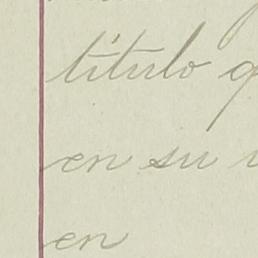 título
en su
en